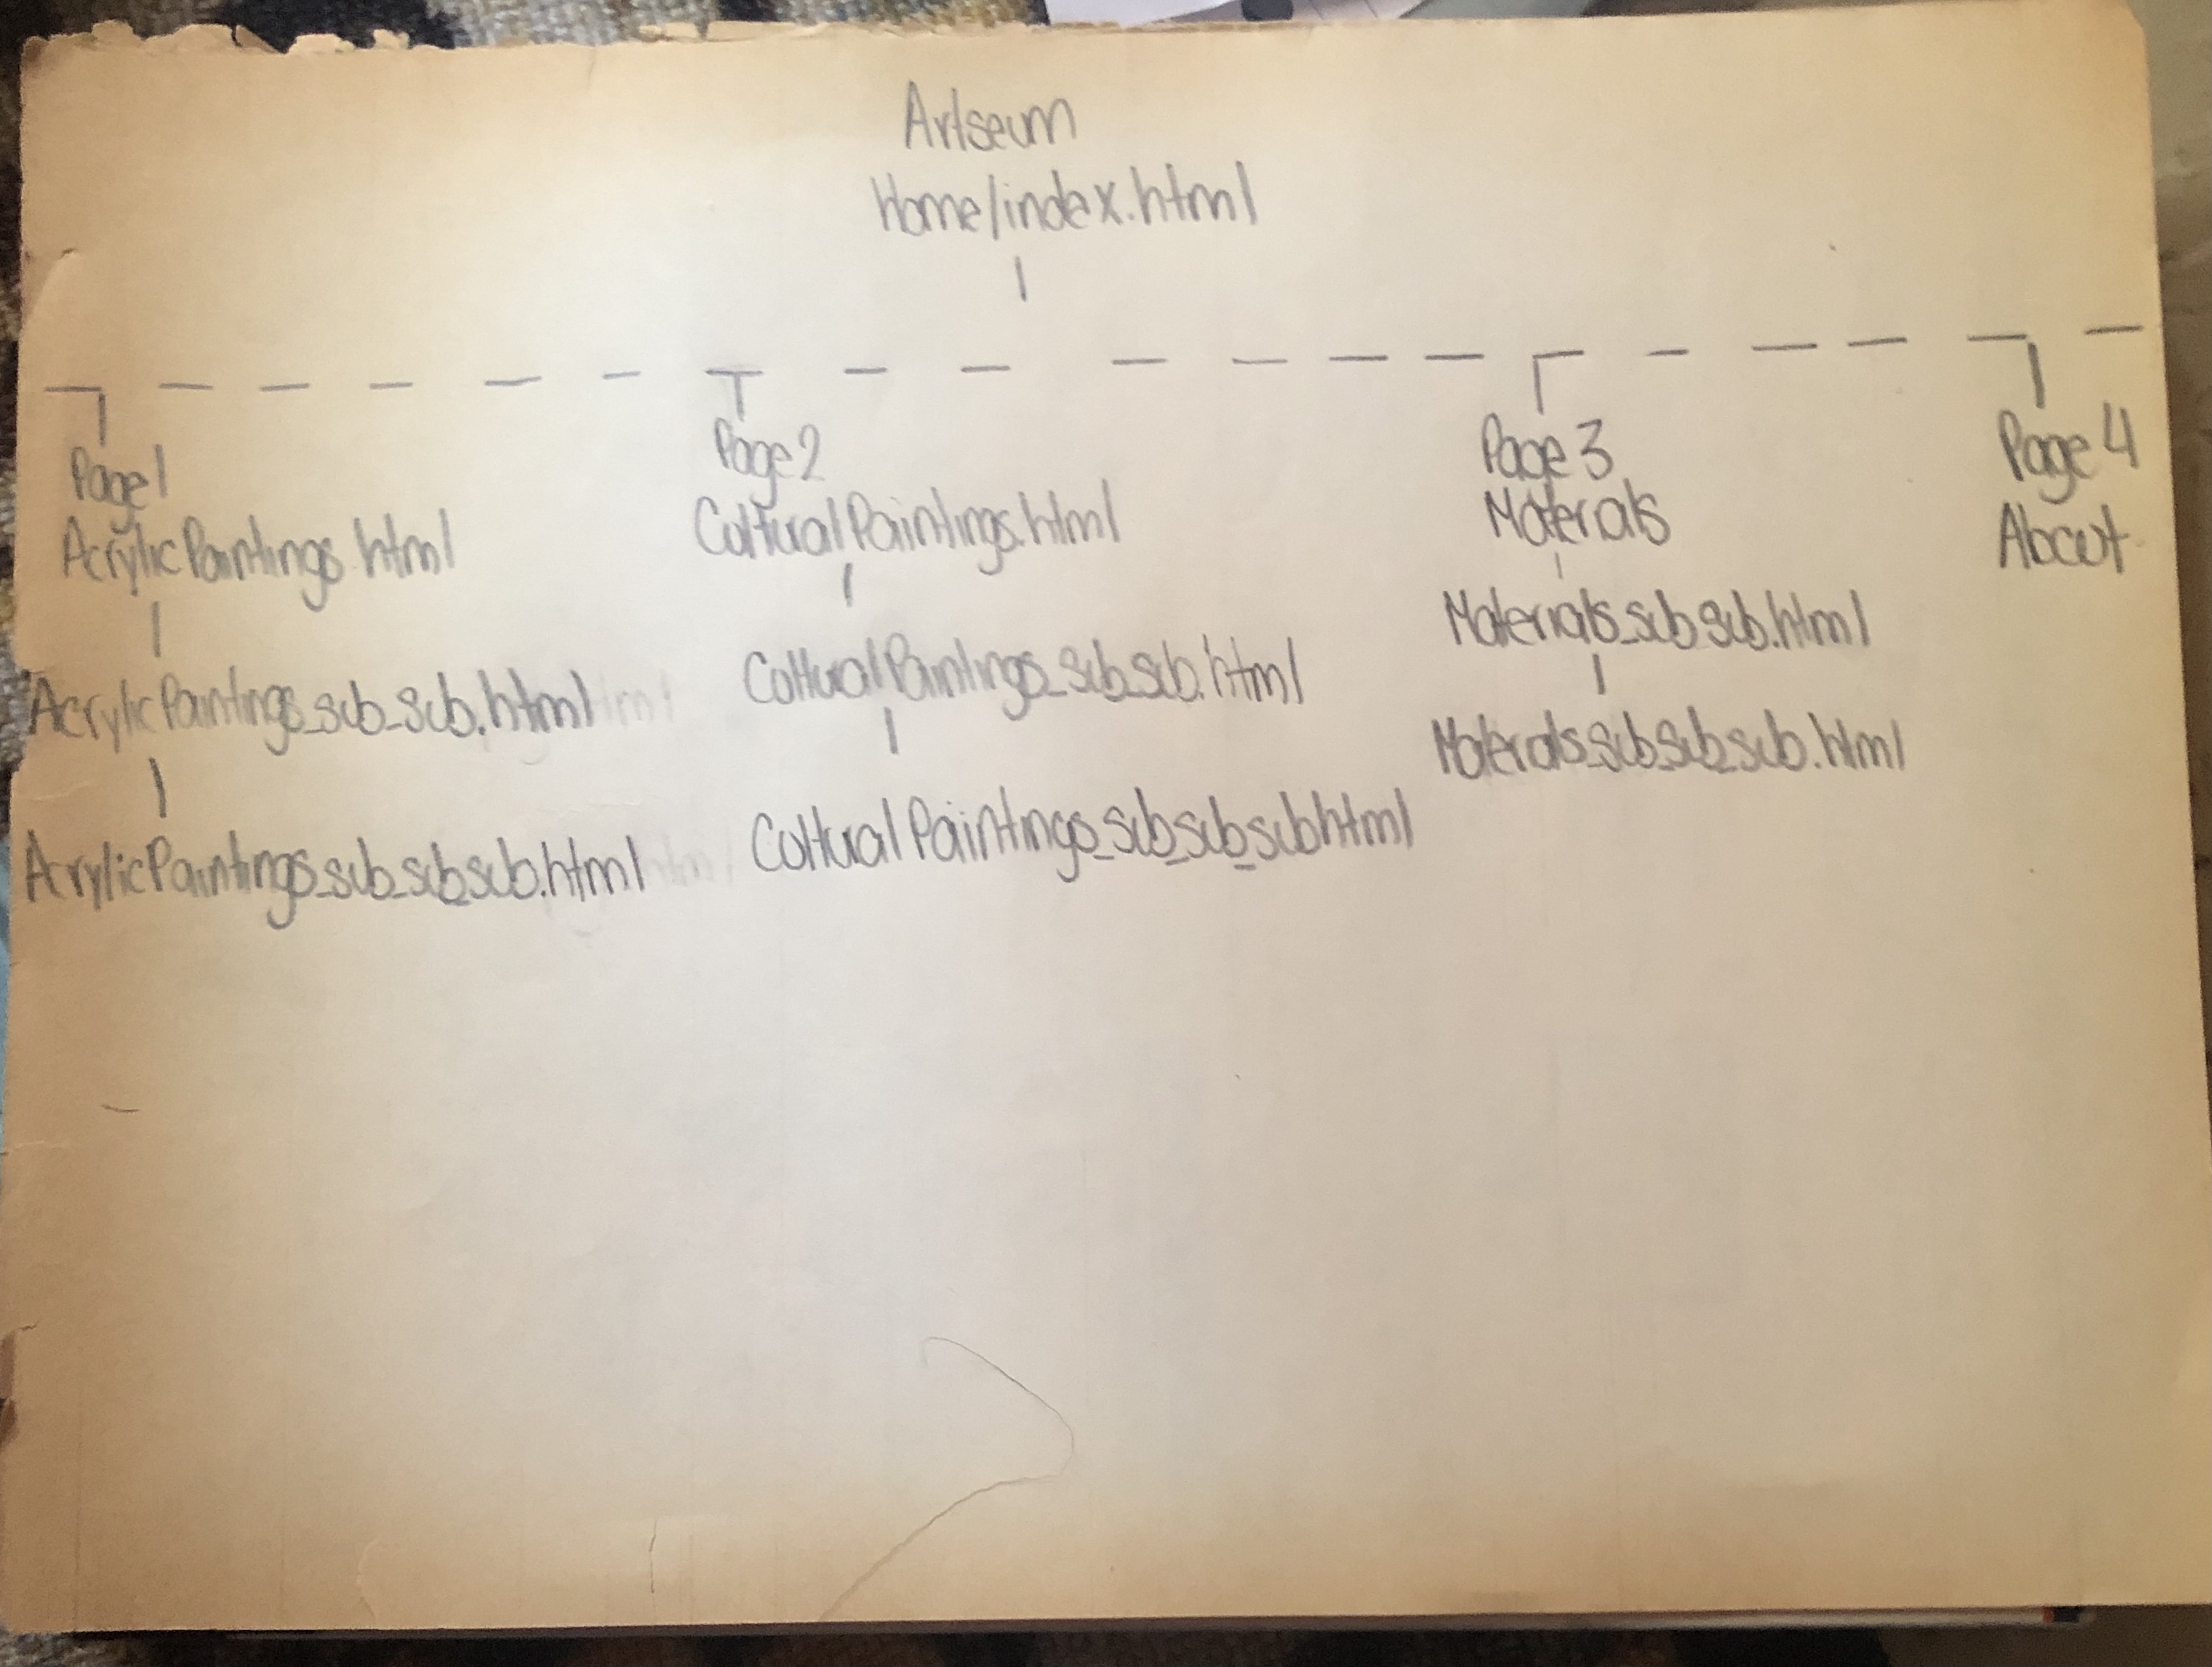 Artseum
Home/index.html
Page 1
AcrylicPaintings.html
AcrylicPaintings_sub_sub.html
AcrylicPaintings_sub_sub_sub.html
Page 2
CulturalPaintings.html
CulturalPaintings_sub_sub.html
CulturalPaintings_sub_sub_subhtml
Page 3
Materials
Materials_sub_sub.html
Materials_sub_sub_sub.html
Page 4
About